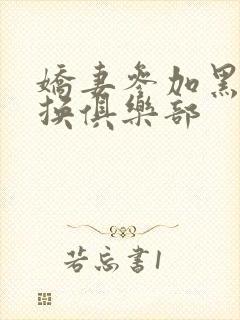 嬌妻參加黑
換俱樂部
若忘書1